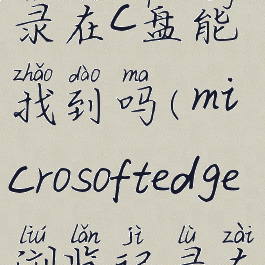 录在C盘能
zhǎo dào ma
找到吗(mi
crosoftedge
liú lǎn jì lù zài
浏览记录在